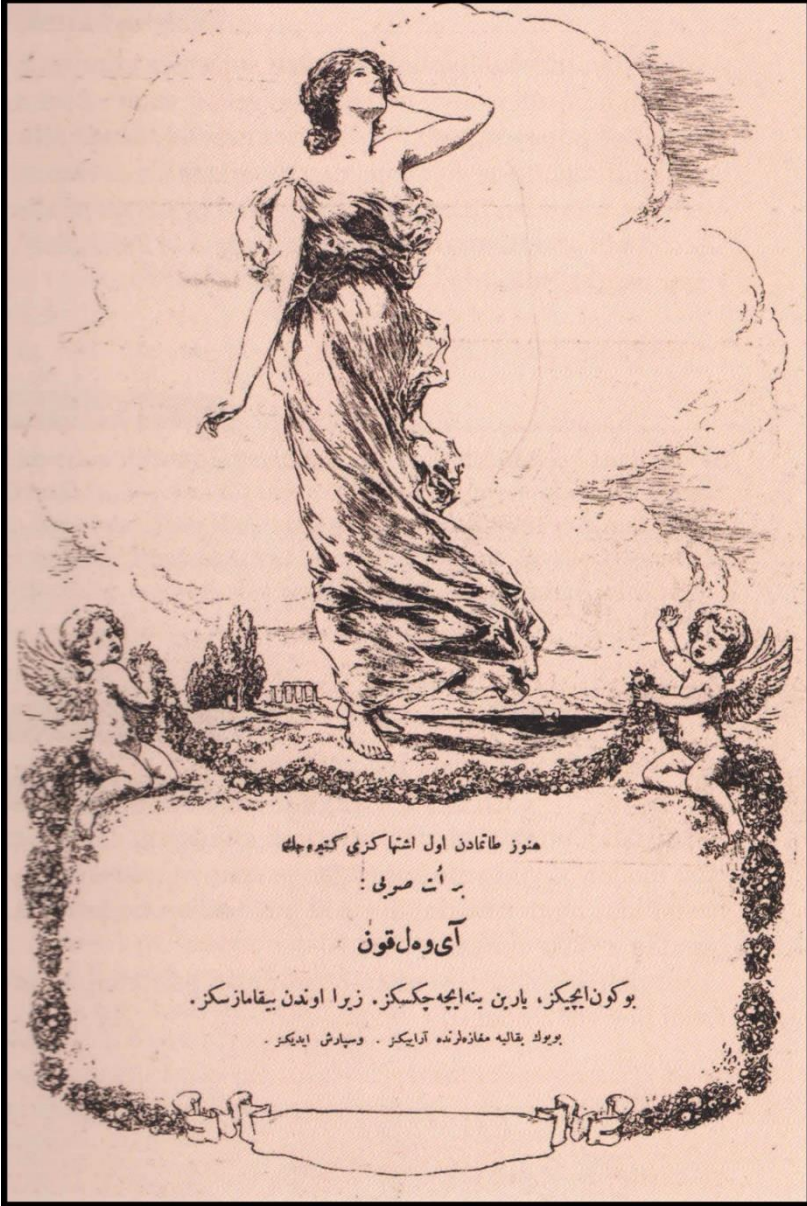 هنوز طاتمادن اول اشتهاكزى كتيره‌جك
بر اُت صويى :
آى‌وه‌ل‌قون
بوكون ايچيكز، يارين ينه ايچه‌جكسكز. زيرا اوندن بيقامازسكز.
بويوك بقاليه مغازه‌لرنده آراييكز . وسپارش ايديكز .